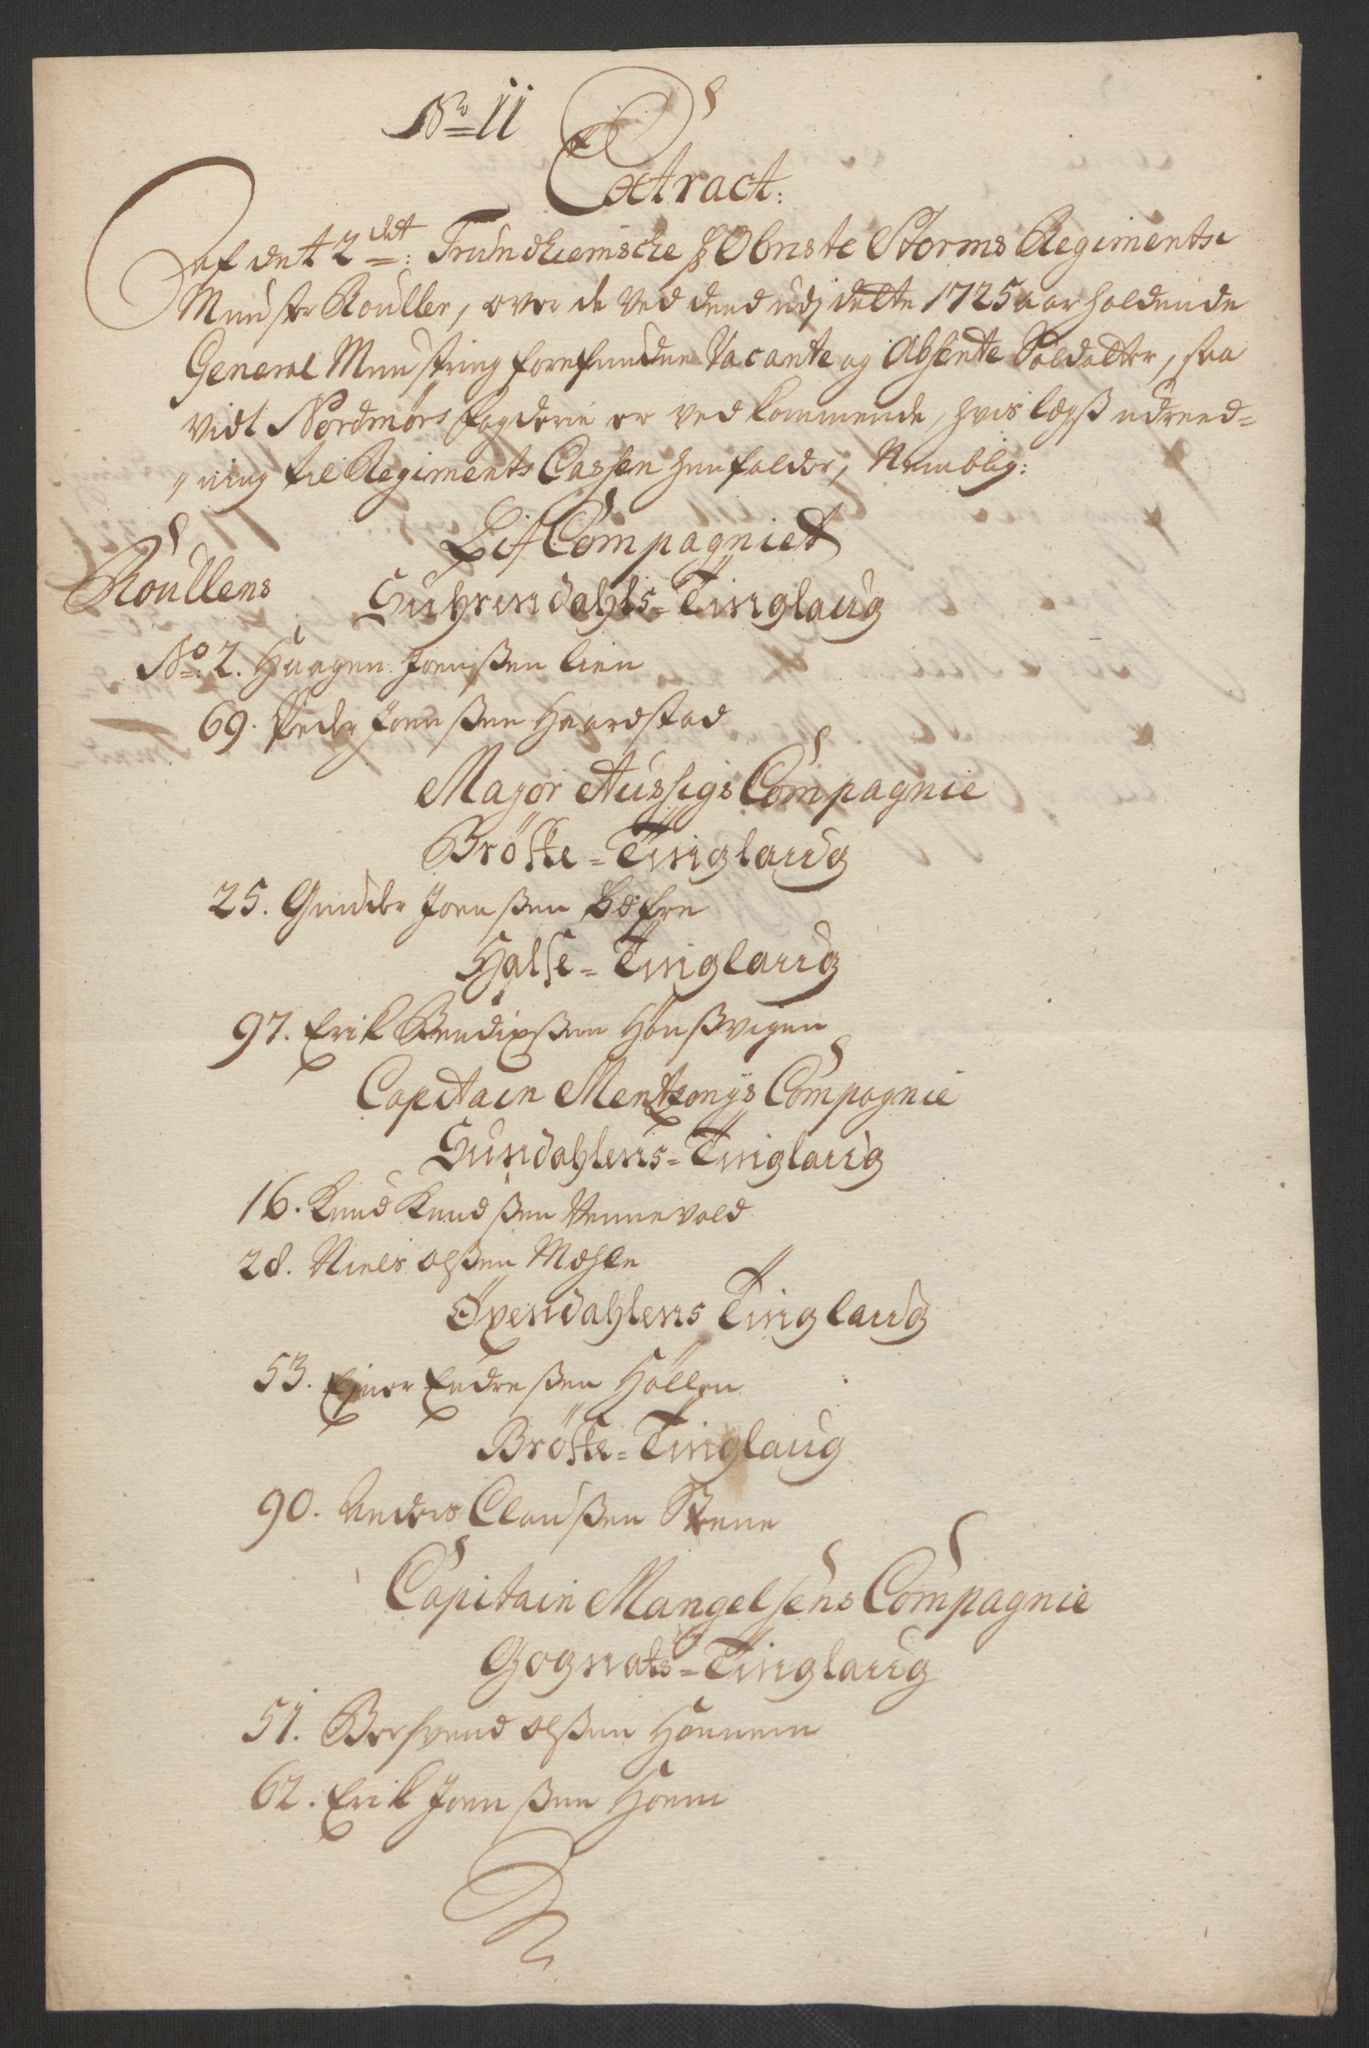 No 11
Extract:
af det 2det: Trundhiemsche Obriste Storms Regiments
Munster Rouller, over de ved dend udj dette 1725 aar holdende
General Munstring forefundne Vacante og Absente Soldatter, saa
vidt Nordmørs Fogderie er vedkommende, hvis lægß udreed-
ning til Regiments Cassen henfalder, Nemblig:
Lif Compagniet
Roullens Suhrendahls-Tinglaug
No: 2. Haagen Joenßen Lien
69. Peder Joenßen Haardstad
Major Aussigs Compagnie
Bröske-Tinglaug
25. Gunder Joenßen Bæfre
Halse-Tinglaug
97. Erik Bendixßen Hönßvigen
Capitain Mentzonijs Compagnie
Sundahlens-Tinglaug
16. Knud Knudßen Vennevold
28. Niels Olßen Mæhle
Øxendahlens Tinglaug
53. Ejner Endreßen Hollen
Bröske-Tinglaug
90. Anders Claußen Stene
Capitain Mangelsens Compagnie
Gognats-Tinglaug
51. Bersvend Olßen Honnem
62. Erik Joenßen Hoem